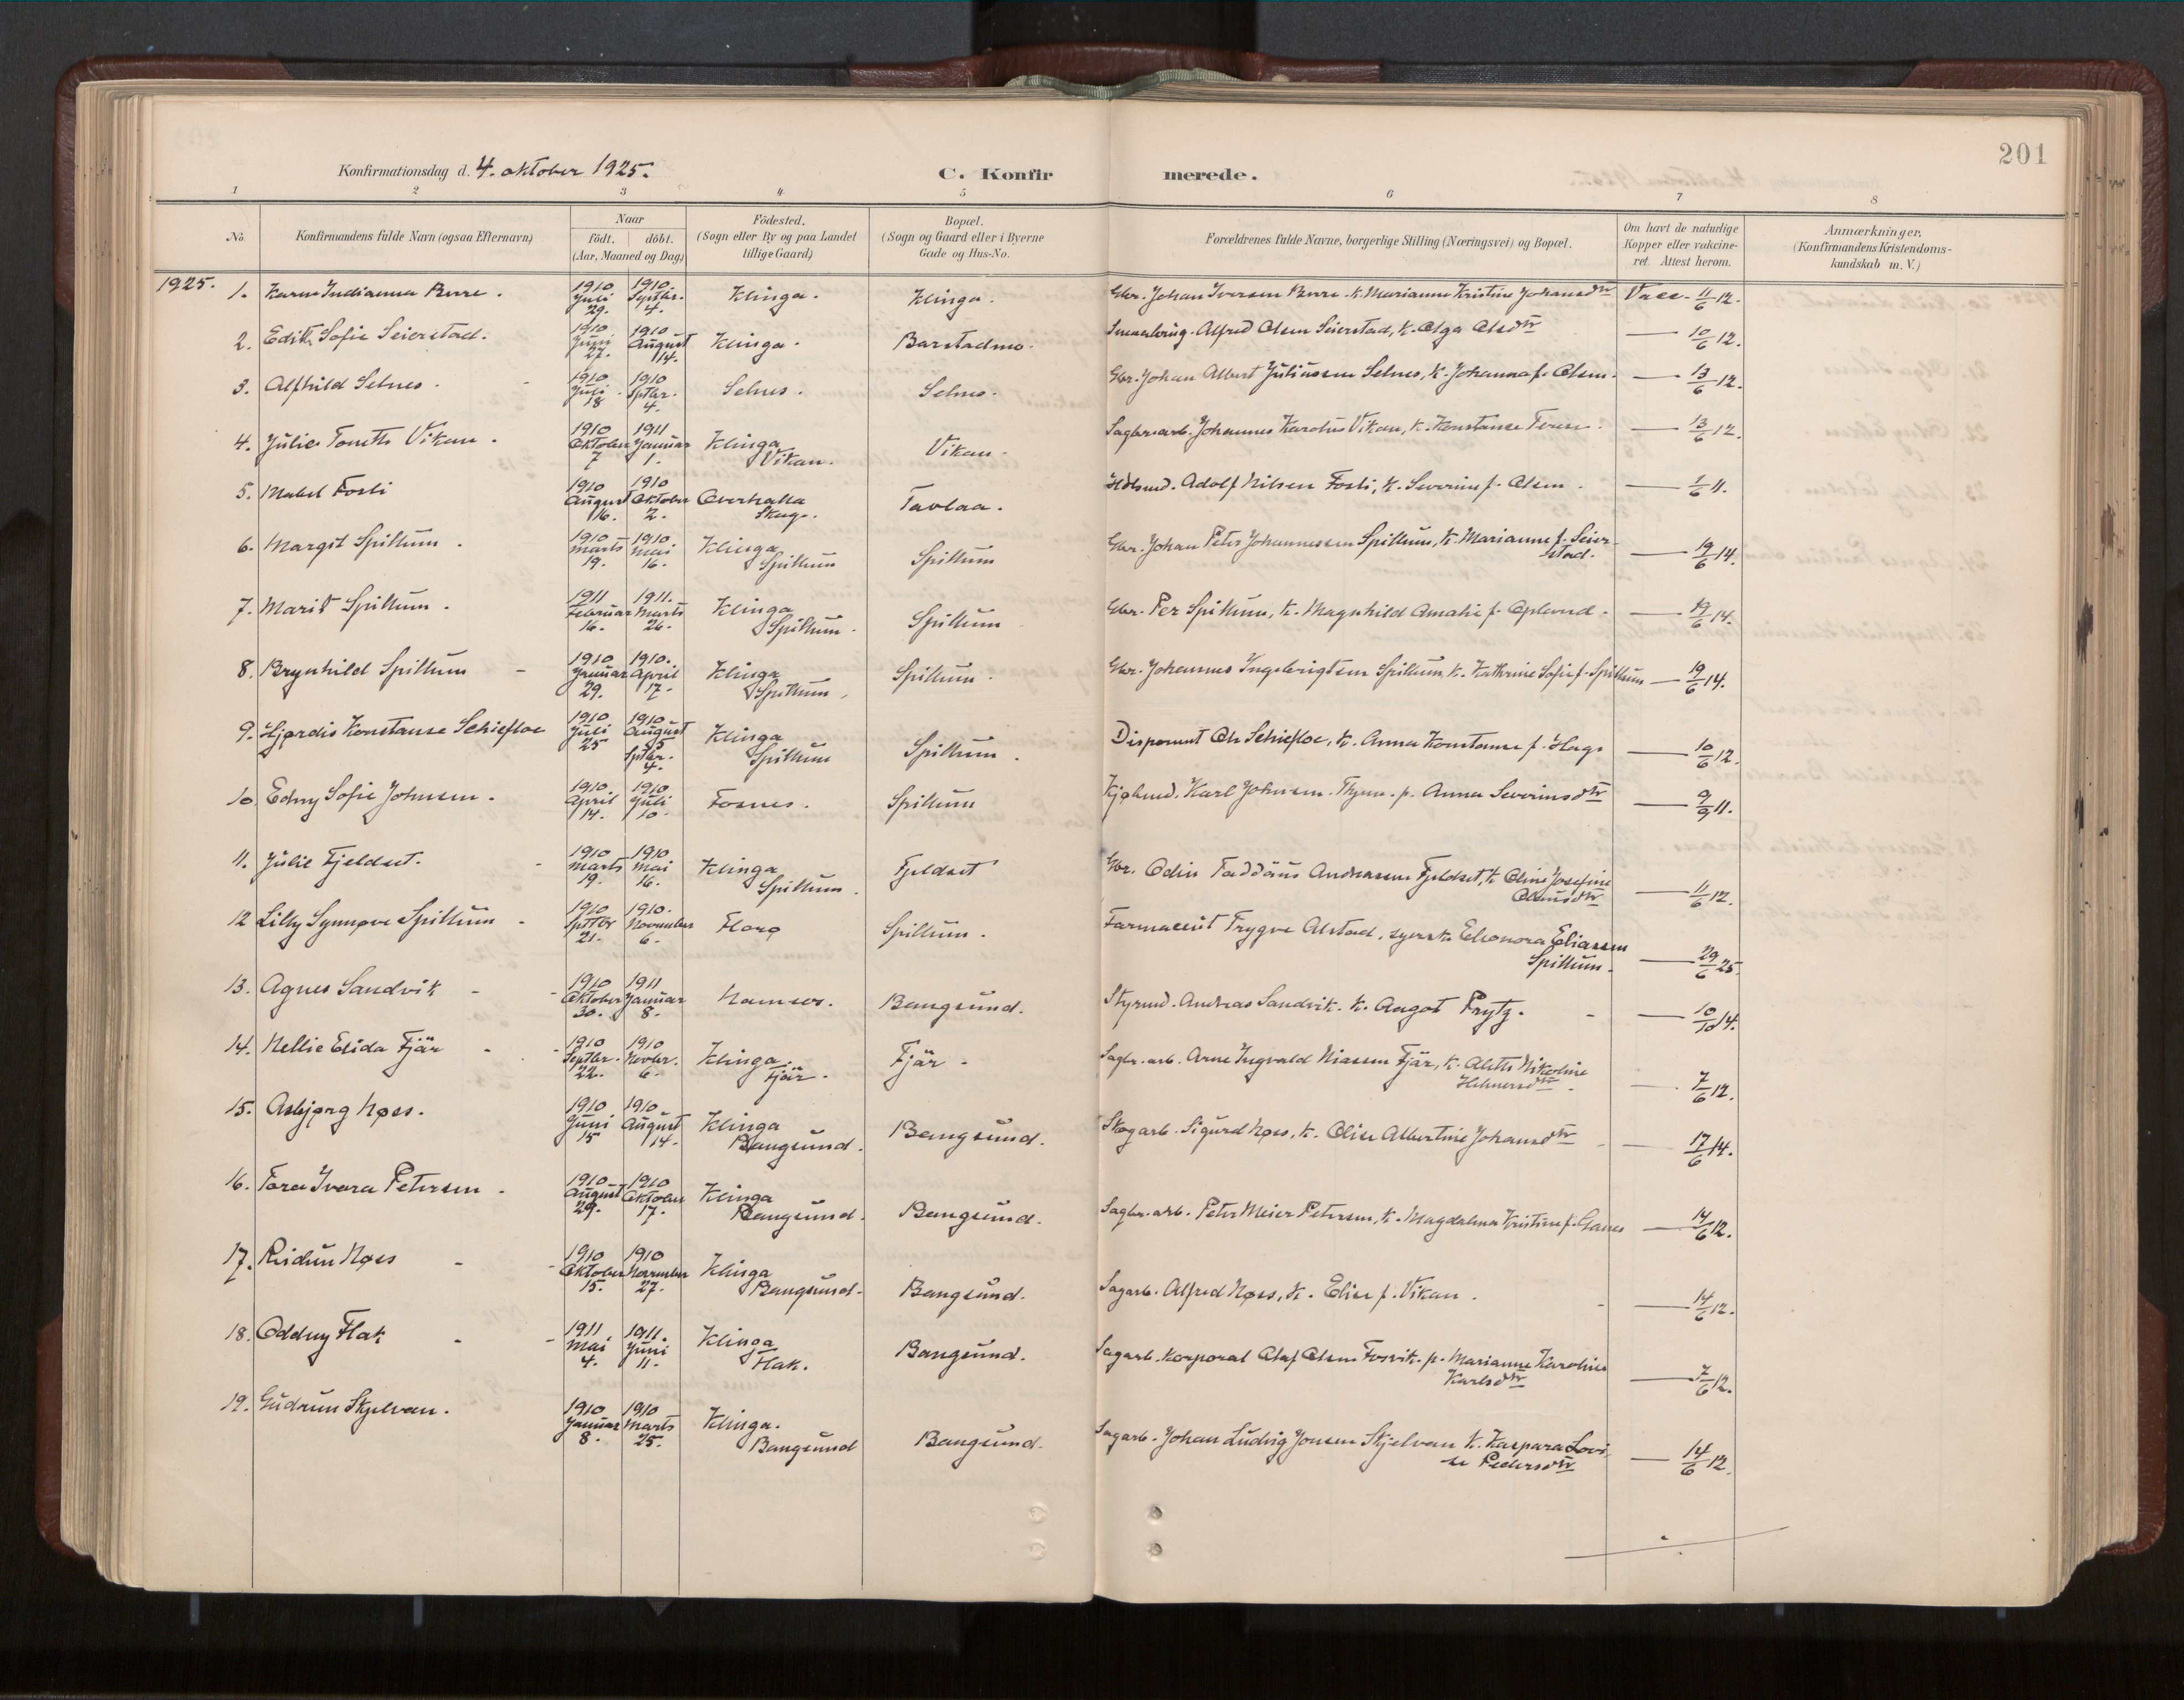 201
Konfirmationsdag d. 4. oktober 1925.
C. Konfirmerede.
1 2 3 4 5 6 7 8
No.
Konfirmandens fulde Navn (ogsaa Efternavn)
Naar
födt. döbt.
(Aar, Maaned og Dag)
Födested.
(Sogn eller By og paa Landet
tillige Gaard)
Bopæl.
(Sogn og Gaard eller i Byerne
Gade og Hus-No.
Forældrenes fulde Navne, borgerlige Stilling (Næringsvei) og Bopæl.
Om havt de naturlige
Kopper eller vakcine-
ret. Attest herom.
Anmærkninger,
(Konfirmandens Kristendoms-
kundskab m. V.)
1925. 1. Indianna 1910 Juli 29. 1910. Septbr. 4. Klinga. Klinga. Gbr. Johan Iversen k. Marianne Kristine Johansdtr Vacc. 11/6 12.
2. Edith Sofie Seierstad. 1910 Juni 27. 1910 August 14. Klinga. Barstadmo. Alfred Olsen Seierstad, k. Olga Olsdtr — 10/6 12.
3. Alfhild Selnes. 1910 Juli 18 1910 Sptbr. 4. Selnes. Selnes. Gbr. Johan Albert Juliussen Selnes, k. Johanna f. Olsen. — 13/6 12.
4. Julie Tonette Vikan. 1910 Oktober 7 1911 Januar 1. Klinga Vikan. Vikan. Sagbr.arb. Johannes Karolius Vikan, k. Konstanse — 13/6 12.
5. Mabel Fosli 1910 August 16. 1910 Oktober 2. Overhalla Skage. Tavlaa. Adolf Nilsen Fosli, k. Severine f. Olsen. — 1/6 11.
6. Margit Spillum. 1910 Marts 19. 1910 Mai 16. Klinga Spillum Spillum Gbr. Johan Peter Johannessen Spillum, k. Marianne f. Seier-
stad. — 19/6 14.
7. Marit Spillum. 1911 Februar 16. 1911. Marts 26. Klinga Spillum. Spillum Gbr. Per Spillum, k. Magnhild Amalie f. Opland. — 19/6 14.
8. Brynhild Spillum 1910 Januar 29. 1910. April 17. Klinga Spillum. Spillum. Gbr. Johannes Ingebrigtsen Spillum, k. Kathrine Sofie f. Spillum — 19/6 14.
9. Hjørdis Konstanse Schiefloe 1910 Juli 25 1910 August Sptbr. 4. Klinga Spillum Spillum. Disponent Ole Schiefloe, k. Anna Konstanse f. Hage — 10/6 12.
10. Edny Sofie Johnsen. 1910. April 14. 1910 Juli 10. Fosnes. Spillum Kjøbmd. Karl Johnsen. p. Anna Severinsdtr — 9/9 11.
11. Julie Fjeldset. 1910 Marts 19. 1910 Mai 16. Klinga Spillum. Fjeldset Gbr. Odin Taddäus Andreassen Fjeldset, k. Oline Josefine
— 11/6 12.
12 Lilly Synnøve Spillum 1910 Sptbr 21. 1910. November 6. Florø Spillum. Farmaceut Trygve Alstad, syerske Eleonora Eliassen
Spillum. — 29/6 25.
13. Agnes Sandvik 1910 Oktober 30. 1911 Januar 8. Namsos. Bangsund. Styrmd. Andreas Sandvik. k. Aagot Prytz. — 10/10 14.
14. Nellie Elida Fjär 1910 Septbr. 22. 1910 Novbr. 6. Klinga. Fjär. Fjär. Sagbr.arb. Arne Ingvald Niassen Fjär, k. Alette Nikoline
Helmersdtr. — 7/6 12.
15. Asbjørg Nøss. 1910 Juni 15 1910 August 14. Klinga Bangsund. Bangsund. Skogarb. Sigurd Nøss, k. Olise Albertine Johansdtr — 17/6 14.
16. Tora Ivara Petersen. 1910 August 29. 1910 Oktober 17. Klinga Bangsund. Bangsund. Sagbr.arb. Peter Meier Petersen, k. Magdalena Kristine f. — 14/6 12.
17. Reidun Nøss 1910 Oktober 15. 1910 November 27. Klinga Bangsund. Bangsund. Sagarb. Alfred Nøss, k. Elise f. Vikan. — 14/6 12.
18. Oddny Flak 1911 Mai 4. 1911. Juni 11. Klinga Flak. Bangsund. Sagarb. Korporal Olaf Olsen Fosvik. p. Marianne Karoline
Karlsdtr — 7/6 12.
19. Gudrun Skjelvan. 1910 Januar 8. 1910 Marts 25. Klinga. Bangsund Bangsund. Sagarb. Johan Ludvig Jonsen Skjelvan k. Kaspara Lovi-
se Pedersdtr — 14/6 12.